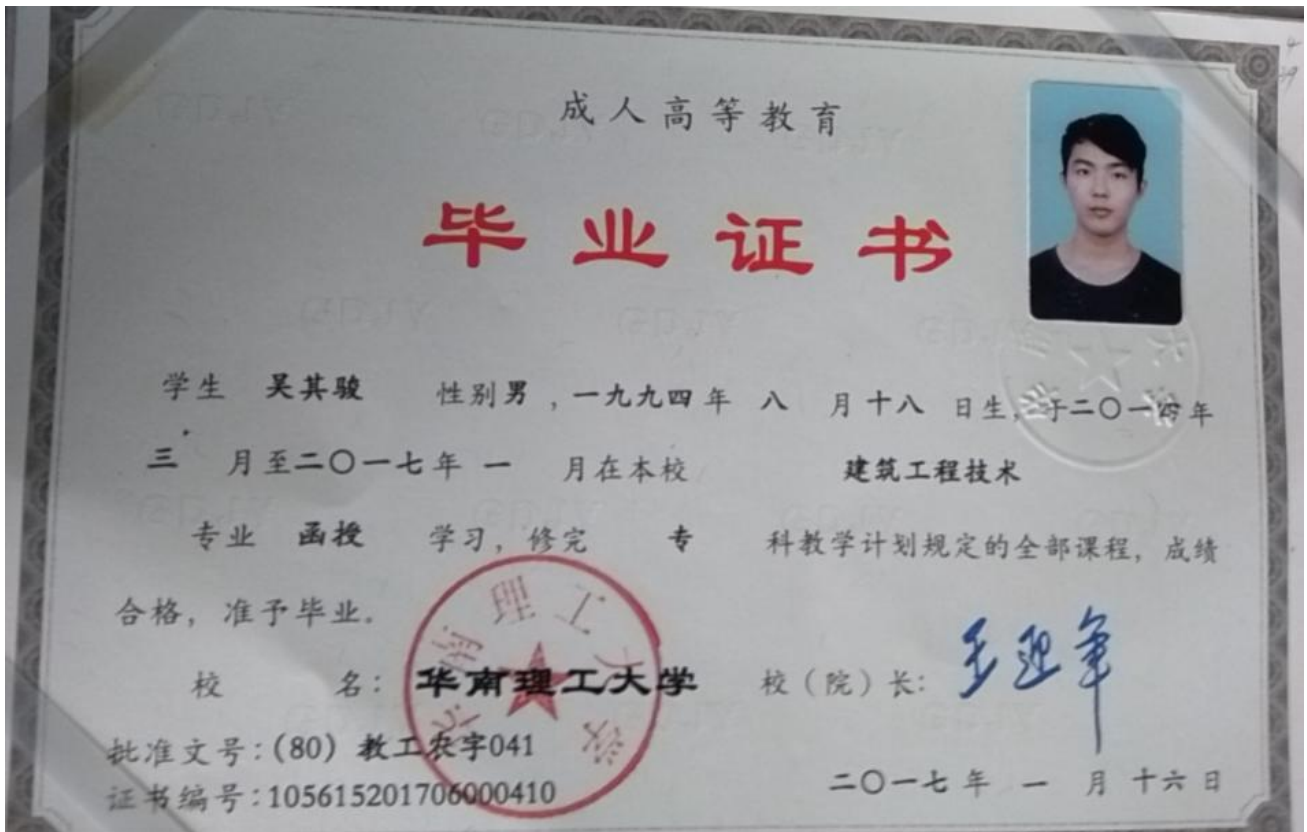 成人高等教育
毕业证书
学生 吴其骏 性别男,一九九四年 八 月十八 日生,于二〇一四年
三 月至二〇一七年 一 月在本校 建筑工程技术
专业 函授 学习,修完 专 科教学计划规定的全部课程,成绩
合格,准予毕业.
校 名:华南理工大学 校(院)长:王迎军
华南理工大学
批准文号:(80)教工农字041
证书编号:105615201706000410
二〇一七年 一 月 十六 日